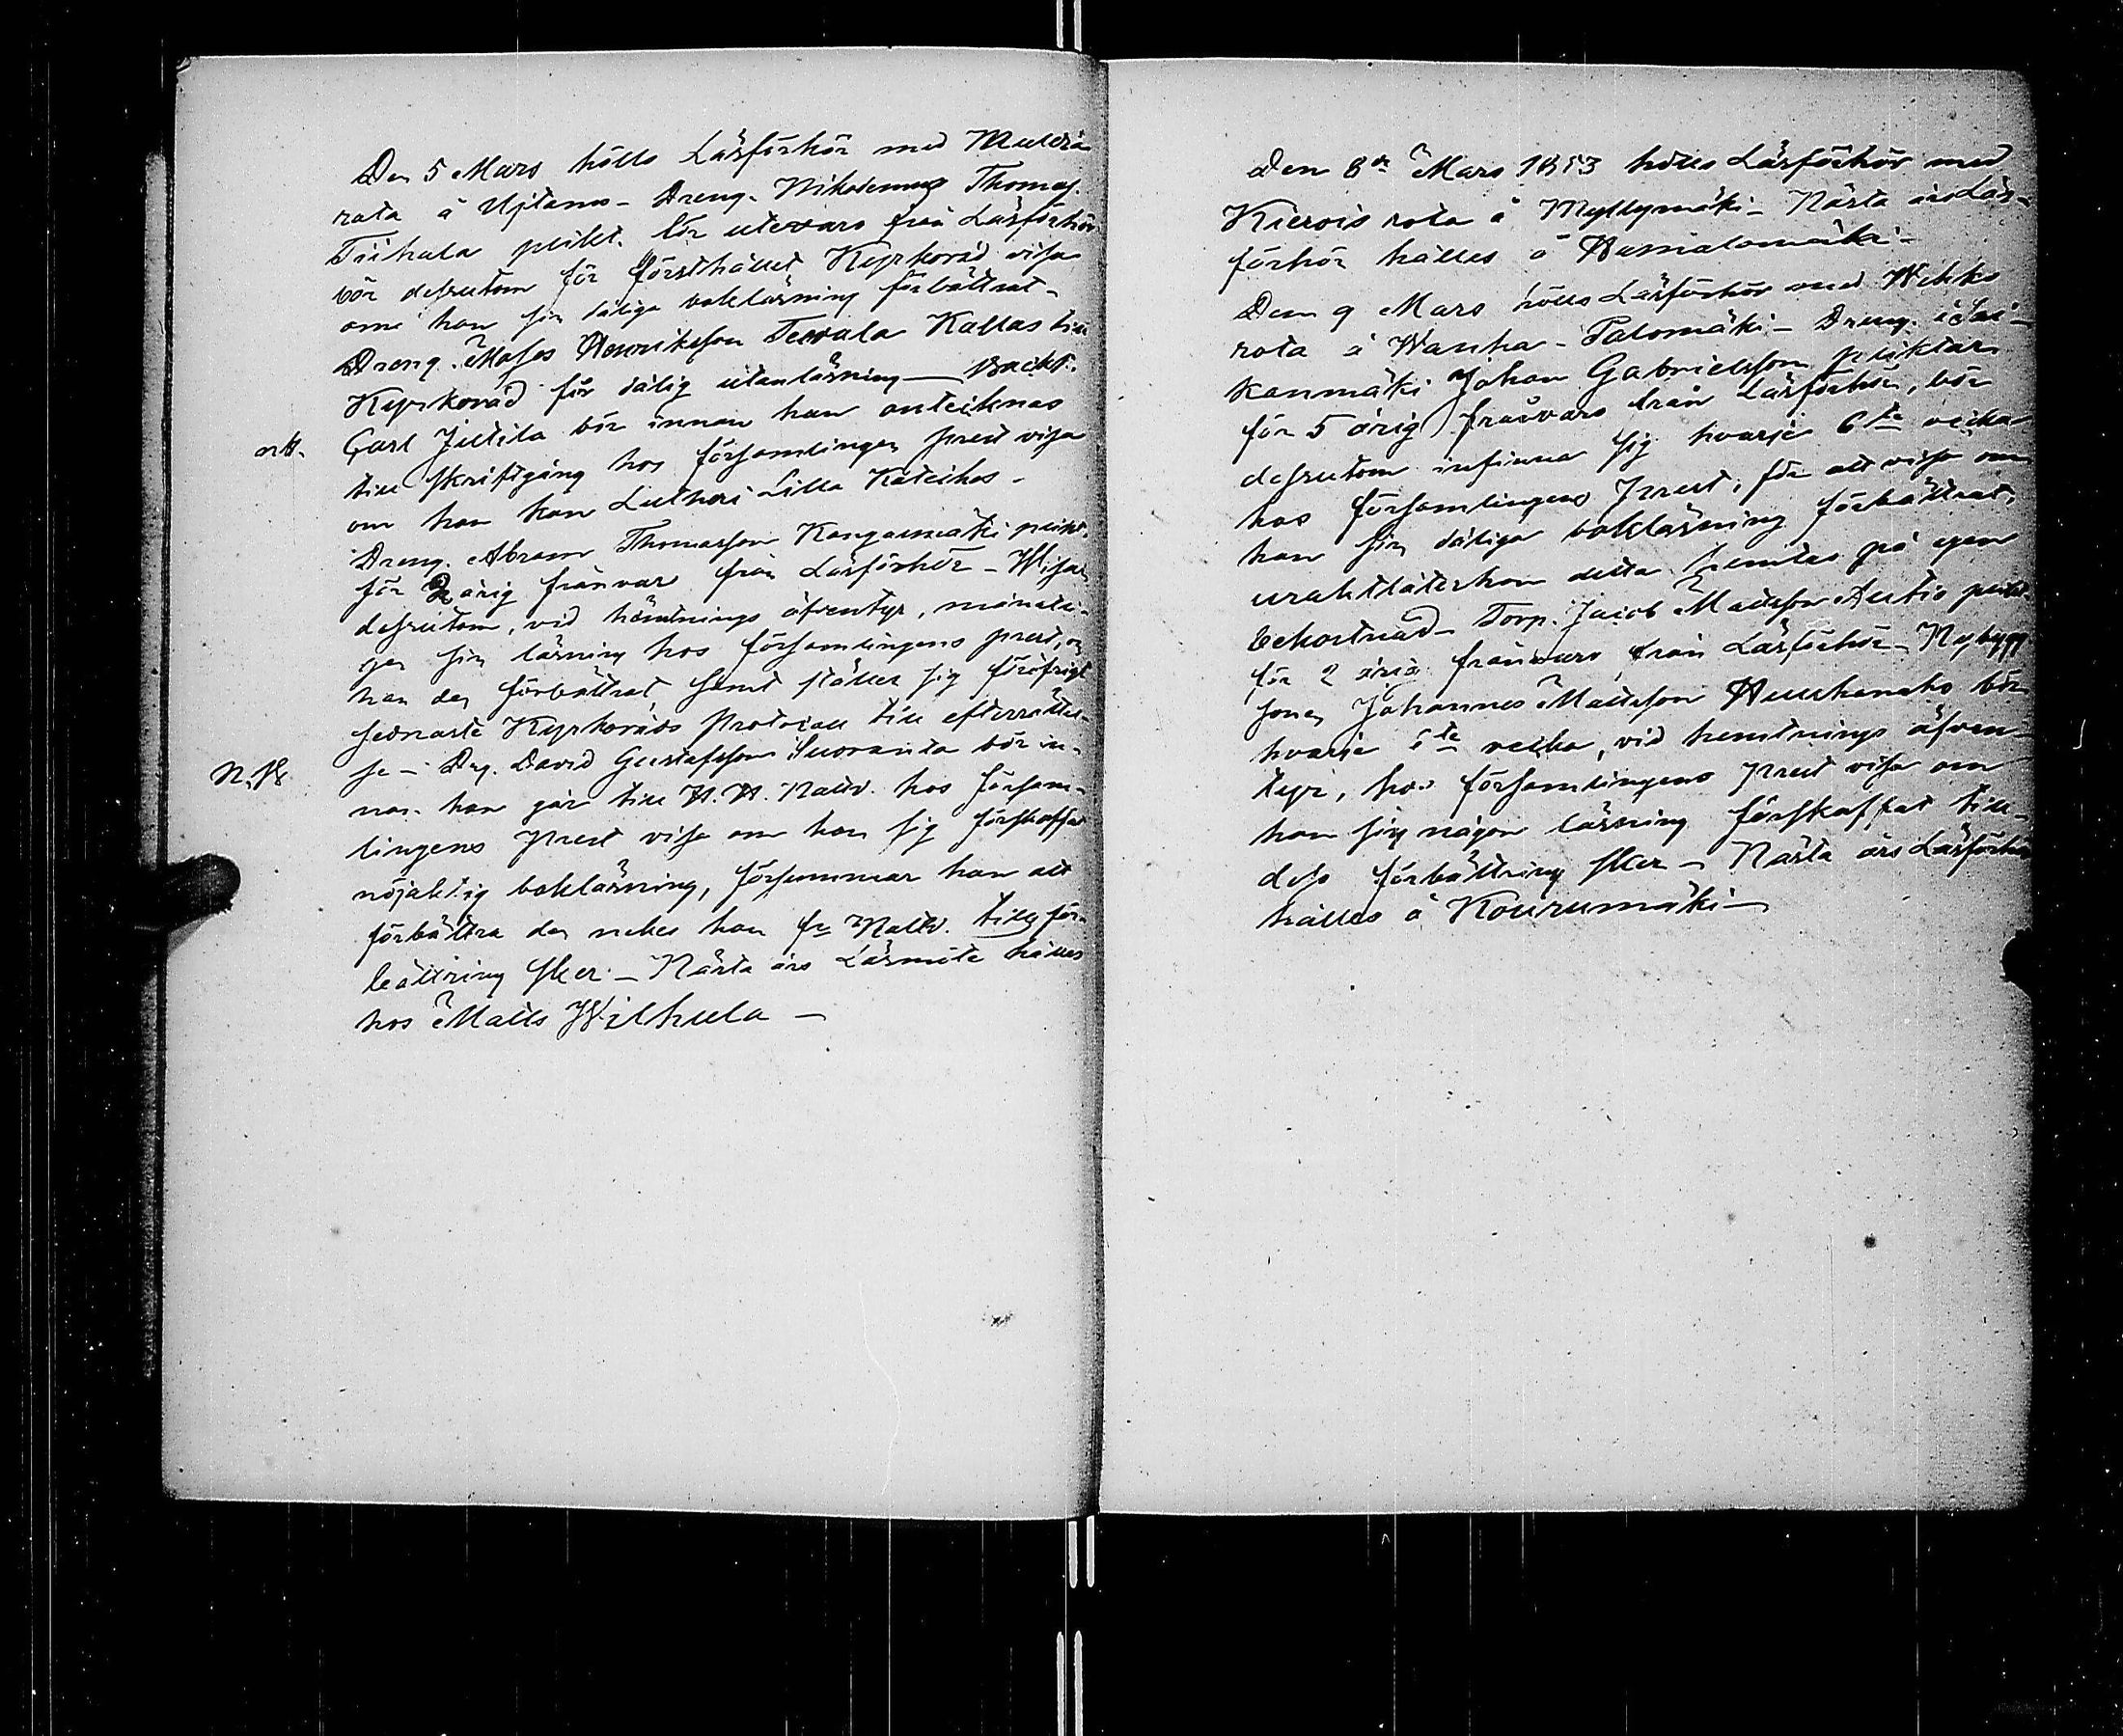 Den 5 Mars hölls Läsförhör med
rota å Ujtamo - Dreng. Nikodemus Thomas.
Tiihala plikt. för utevaro från Läsförhör
bör dessutom för församhållet Kyrkoråd visa
om han sin dåliga bokläsning förbättrat -
Dreng. Moses Henriksson Tervala Kallas till
Kyrkoråd för dålig utanläsning — Backt.
Carl Jutila bör innan han antecknas
till skriftgång hos församlingen prest visa
om han kan Lutheri Lilla Kateches -
Dreng. Abram Thomasson Kangasmäki plikt.
för 2 årig frånvaro från Läsförhör - Visar
dessutom, vid hämtnings äfventyr, månatli-
gen sin läsning hos församlingens prest, om
han den förbättrat, samt ställer sig föröfrigt
sednaste Kyrkoråds Protocoll till efterrättel-
N.B. se - Drg. David Gustafsson Suoranta bör in-
nan han går till H. H. Nattv. hos försam-
lingens Prest visa om han sig förskaffat
nöjaktig bokläsning, försummar han att
förbättra den nekes han fr. Nattv. tills för-
bättring sker. - Nästa års Läsmöte hålles
hos Matts Wilhula -
Den 8de Mars 1853 hölls Läsförhör med
Kiervis rota å Myllymäki - Nästa års Läs-
förhör hålles å
Den 9 Mars hölls Läsförhör med
rota å Wanha-Palomäki - Dreng. i Sai-
kanmäki Johan Gabrielsson pliktar
för 5 årig frånvaro från Läsförhör, bör
dessutom infinna sig hvarje 6te vecka
hos församlingens Prest, för att visa om
han sin dåliga bokläsning förbättrat,
uraktlåter han detta hemtas på egen
bekostnad - Torp. Jacob Mattsson Autio plikt.
för 2 årig frånvaro från Läsförhör - Nybygg.
sonen Johannes Mattsson bör
hvarje 6te vecka, vid hemtnings äfven-
tyr, hos församlingens Prest visa om
han sig någon läsning förskaffat till-
dess förbättring sker - Nästa års Läsförhör
hålles å Kourumäki -